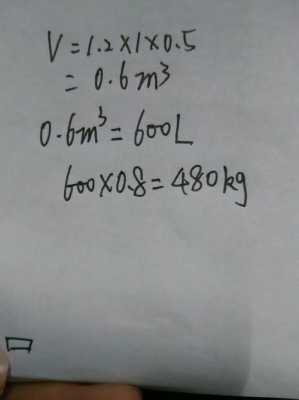 V=1.2×1×0.5
=0.6m³
0.6m³=600L
600×0.8=480kg